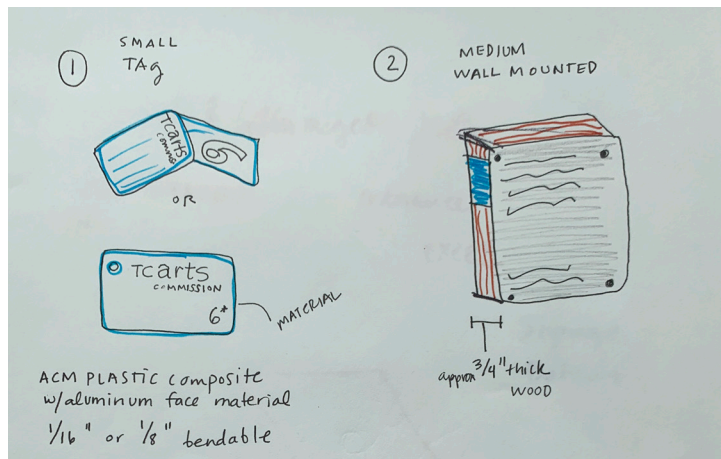 1
SMALL
TAg
TCarts
commis
6
OR
TCarts
COMMISSION
6*
MATERIAL
ACM PLASTIC composite
w/aluminum face material
1/16" or 1/8" bendable
2
MEDIUM
WALL MOUNTED
approx 3/4" thick
WOOD